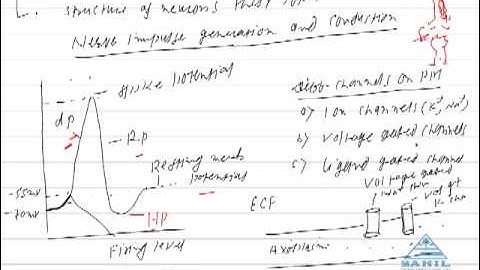 structure of neurons, their
Nerve impulse generation and conduction
spike potential
dp
R.P
Resting memb
potential
-55mv
-70mv
H.P
Firing level
channels on PM
a) Ion channels (K+, Na+)
b) voltage gated channels
c) ligand gated channel
voltage gated
ECF
Axoplasm
MAHIL